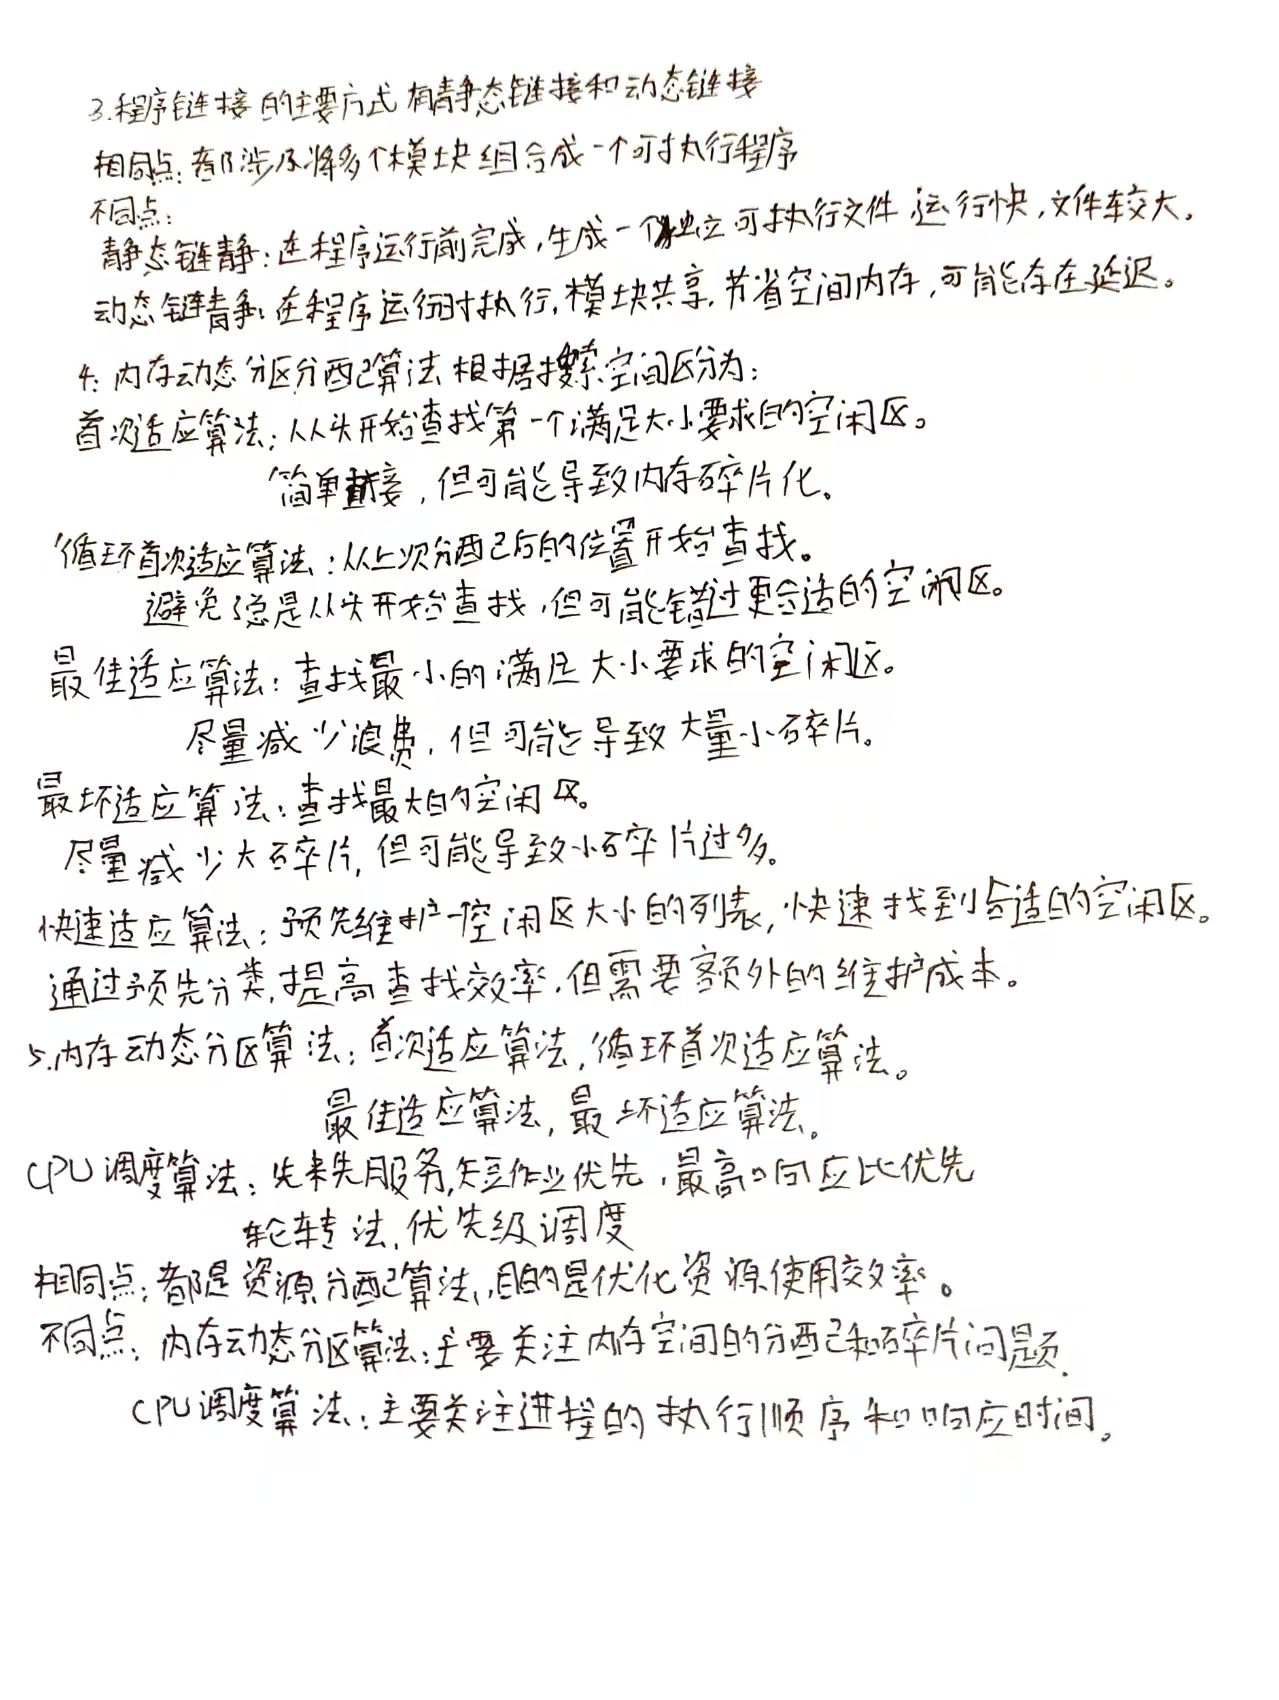 3.程序链接的主要方式有静态链接和动态链接
相同点:都涉及将多个模块组合成一个可执行程序
不同点:
静态链静:在程序运行前完成,生成一个独立可执行文件,运行快,文件较大。
动态链静:在程序运行时执行,模块共享,节省空间内存,可能存在延迟。
4:内存动态分区分配算法根据搜索空间区分为:
首次适应算法:从从头开始查找第一个满足大小要求的空闲区。
简单直接,但可能导致内存碎片化。
循环首次适应算法:从上次分配后的位置开始查找。
避免了总是从头开始查找,但可能错过更合适的空闲区。
最佳适应算法:查找最小的满足大小要求的空闲区。
尽量减少浪费,但可能导致大量小碎片。
最坏适应算法:查找最大的空闲区。
尽量减少大碎片,但可能导致小碎片过多。
快速适应算法:预先维护一空闲区大小的列表,快速找到合适的空闲区。
通过预先分类,提高查找效率,但需要额外的维护成本。
5.内存动态分区算法:首次适应算法,循环首次适应算法。
最佳适应算法,最坏适应算法。
CPU调度算法:先来先服务,短作业优先,最高响应比优先
轮转法,优先级调度
相同点:都是资源分配算法,目的是优化资源使用效率。
不同点:内存动态分区算法:主要关注内存空间的分配和碎片问题.
CPU调度算法:主要关注进程的执行顺序和响应时间。